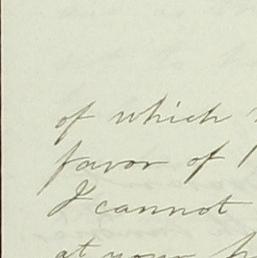 of which
favor of
I cannot
at your